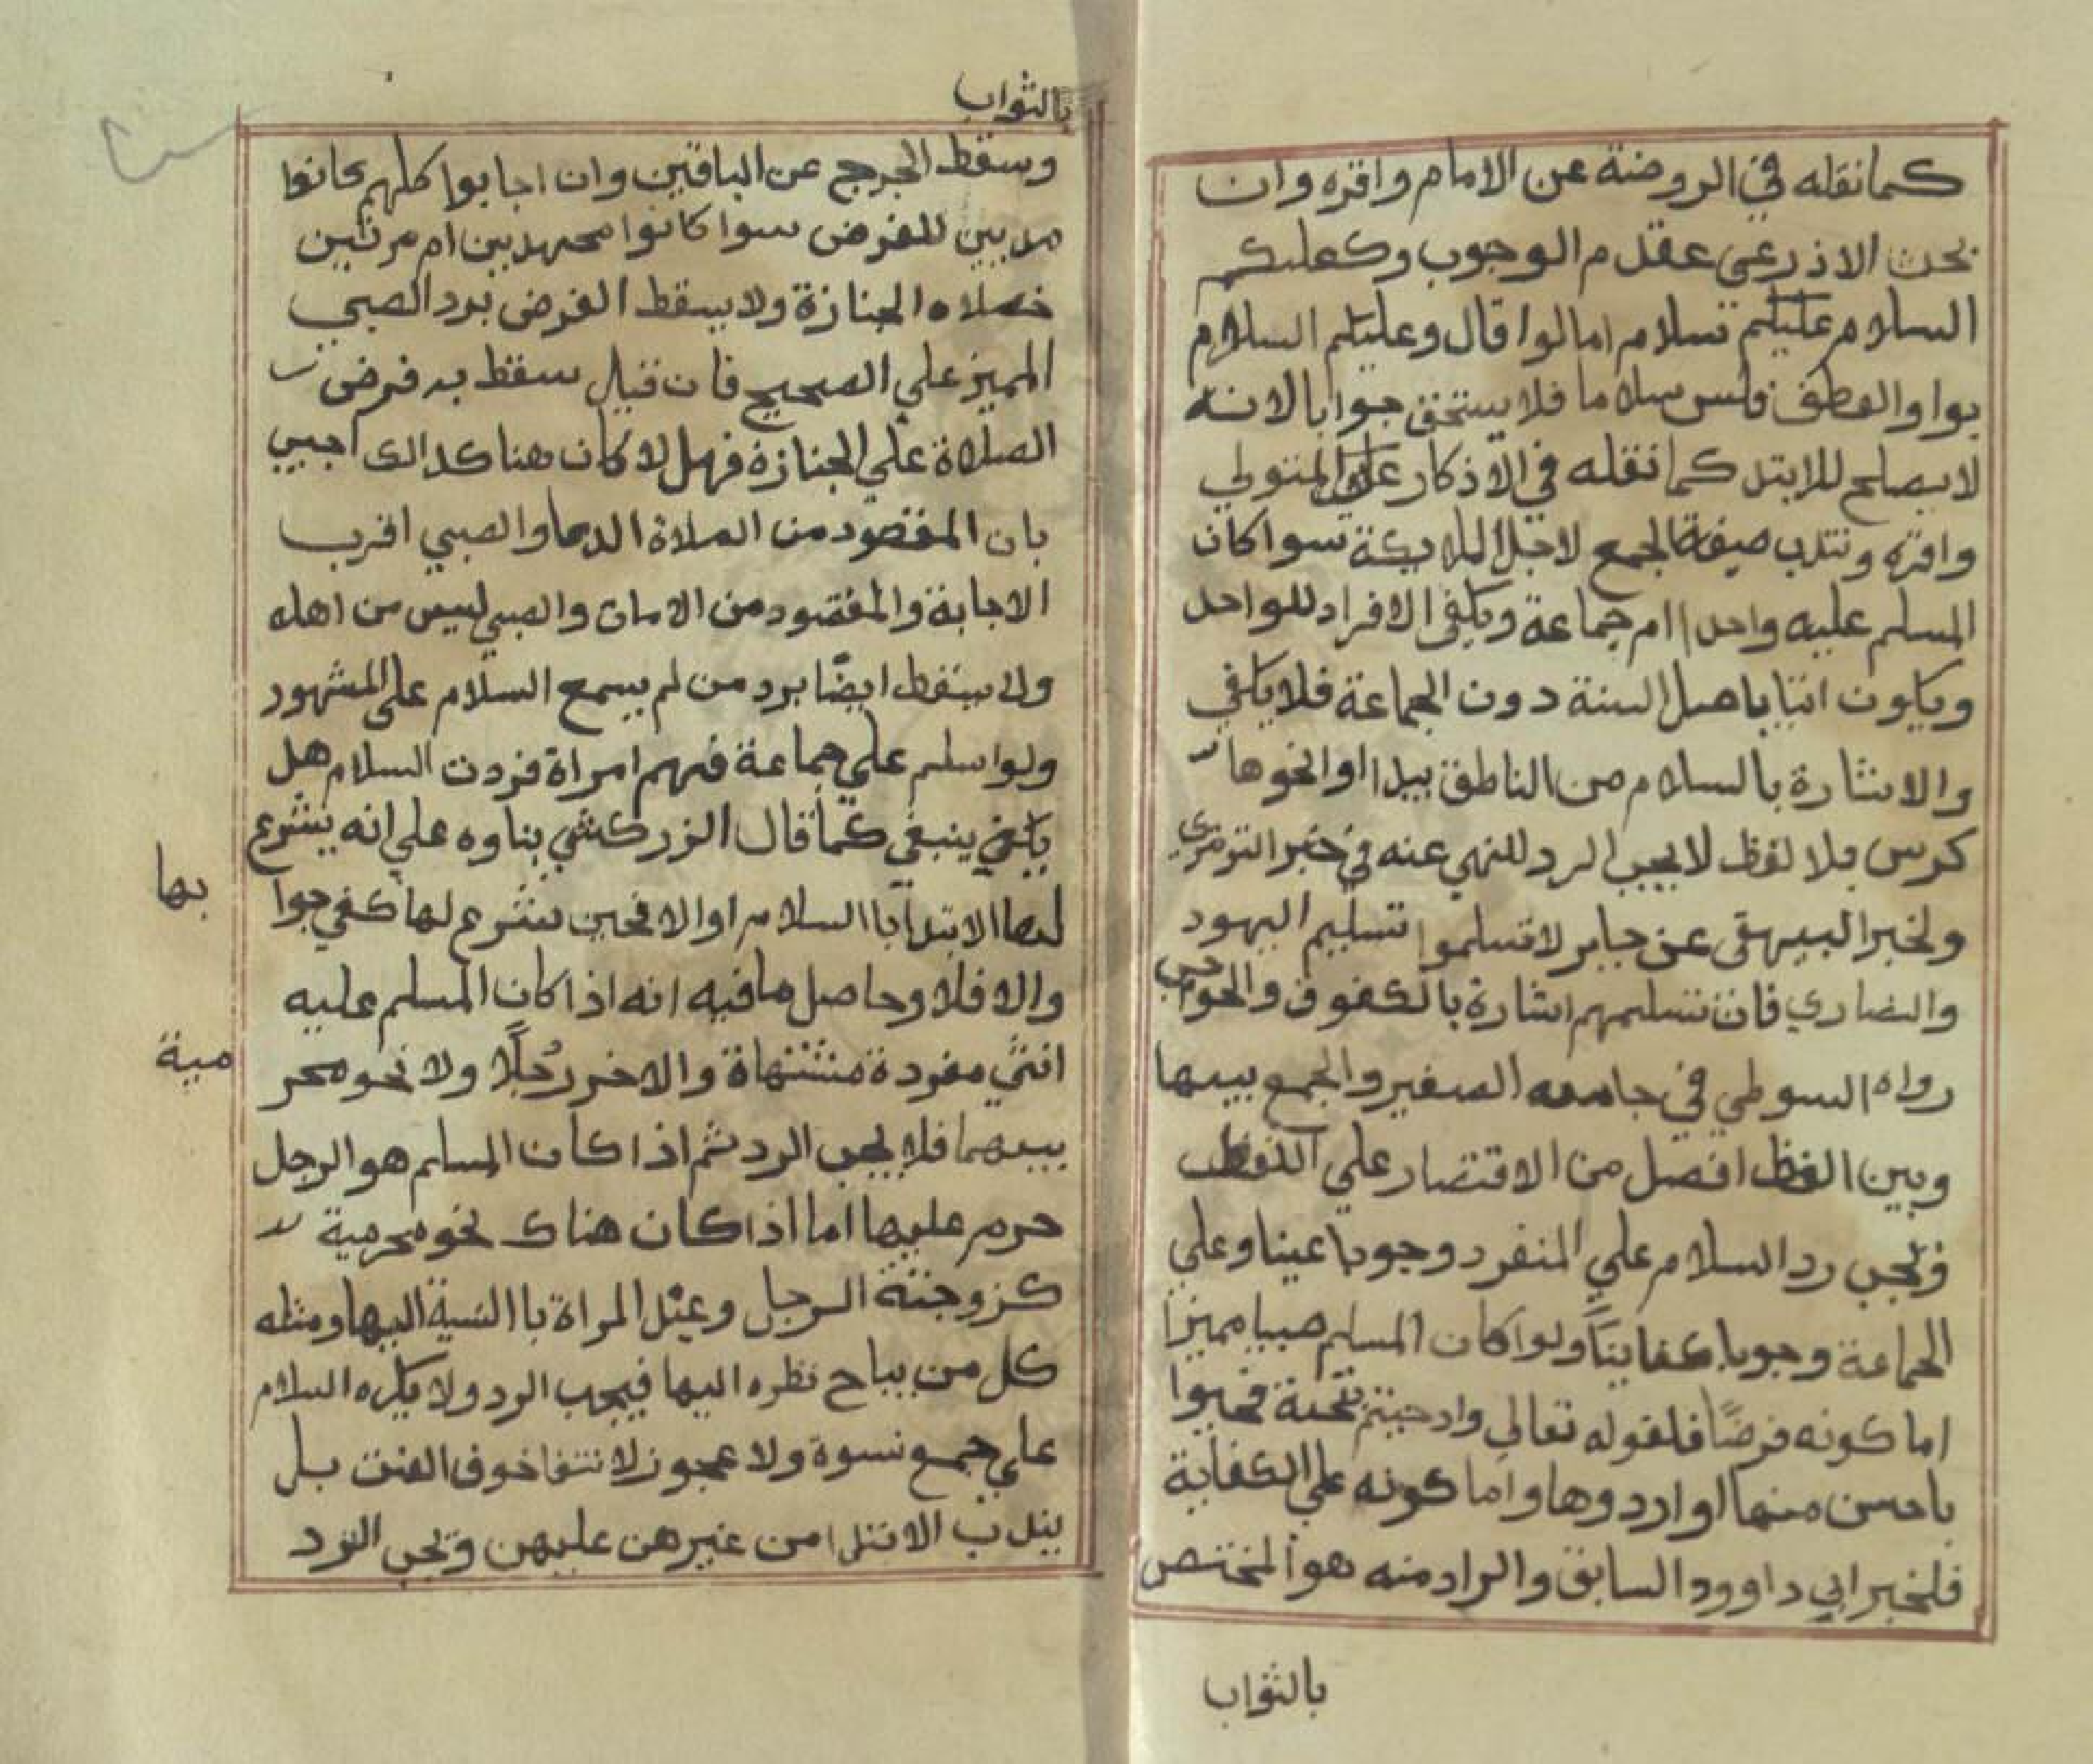 كما نقله في الروضة عن الامام واقره وان
بحث الاذرعي عدم الوجوب وكعليكم
السلام عليكم سلام اما لوا قال وعليكم السلام
بوا والعطف فليس سلاما فلا يستحق جوابا لانه
لا يصلح للابتد كما نقله في الاذكار عن المتولي
واقره وتندب صيغة الجمع لاجل الملايكة سوا كان
المسلم عليه واحدا ام جماعة ويكفي الافراد للواحد
ويكون اتيا باصل السنة دون الجماعة فلا يكفي
والاشارة بالسلام من الناطق بيد ااو انحوها
كرس بلا لفظ لا يجب الرد للنهي عنه في خبر الترمزي
ولخبر البيهقي عن جابر لا تسلموا تسليم اليهود
والنصاري فان تسليمهم اشارة بالكفوف والحواجب
رواه السوطي في جامعه الصغير والجمع بينها
وبين الفظ افضل من الاقتصار علي اللفظ
ويجب رد السلام علي المنفرد وجوبا عينا وعلي
الجماعة وجوبا كفايتاً ولوا كان المسلم صبيا مميزا
اما كونه فرضاً فلقوله تعالي واد حييتم بتحية فحيوا
باحسن منها او اردوها واما كونه علي الكفاية
فلخبر ابي داوود السابق والراد منه هو المختص
بالثواب
بالثواب
وسقط الحرج عن الباقين وان اجابوا كلهم كانوا
مدبين للفرض سوا كانوا مجتهدين ام مرتين
كصلاه الجنازة ولا يسقط الفرض برد الصبي
المميز علي الصحيح فان قيل سقط به فرض
الصلاة علي الجنازة فهل لا كان هنا كدالك اجيب
بان المقصود من الصلاة الدعا والصبي اقرب
الاجابة والمقصود من الامان والصبي ليس من اهله
ولا يسقط ايضًا برد من لم يسمع السلام علي المشهور
ولوا سلم علي جماعة فيهم امراة فردت السلام هل
يكفي ينبغي كما قال الزركشي بناوه علي انه يشرع
لها الابتدا باالسلام اوالا فحين يشرع لها كفي جوا
بها
والا فلا وحاصل ما فيه انه اذا كان المسلم عليه
انثي مفردة مشتهاة والاخر رُجلًا ولا نحو محر
مية
بينهما فلا يجب الرد ثم اذا كان المسلم هو الرجل
حرم عليها اما اذا كان هناك نحو محرمية
كزوجتة الرجل وعبد المراة باالنسبة اليها ومثله
كل من يباح نظره اليها فيجب الرد ولا يكره السلام
علي جمع نسوة ولا عجوز لانتفا خوف الفتن بل
يندب الابتدا من غيرهن عليهن ويجب الرد